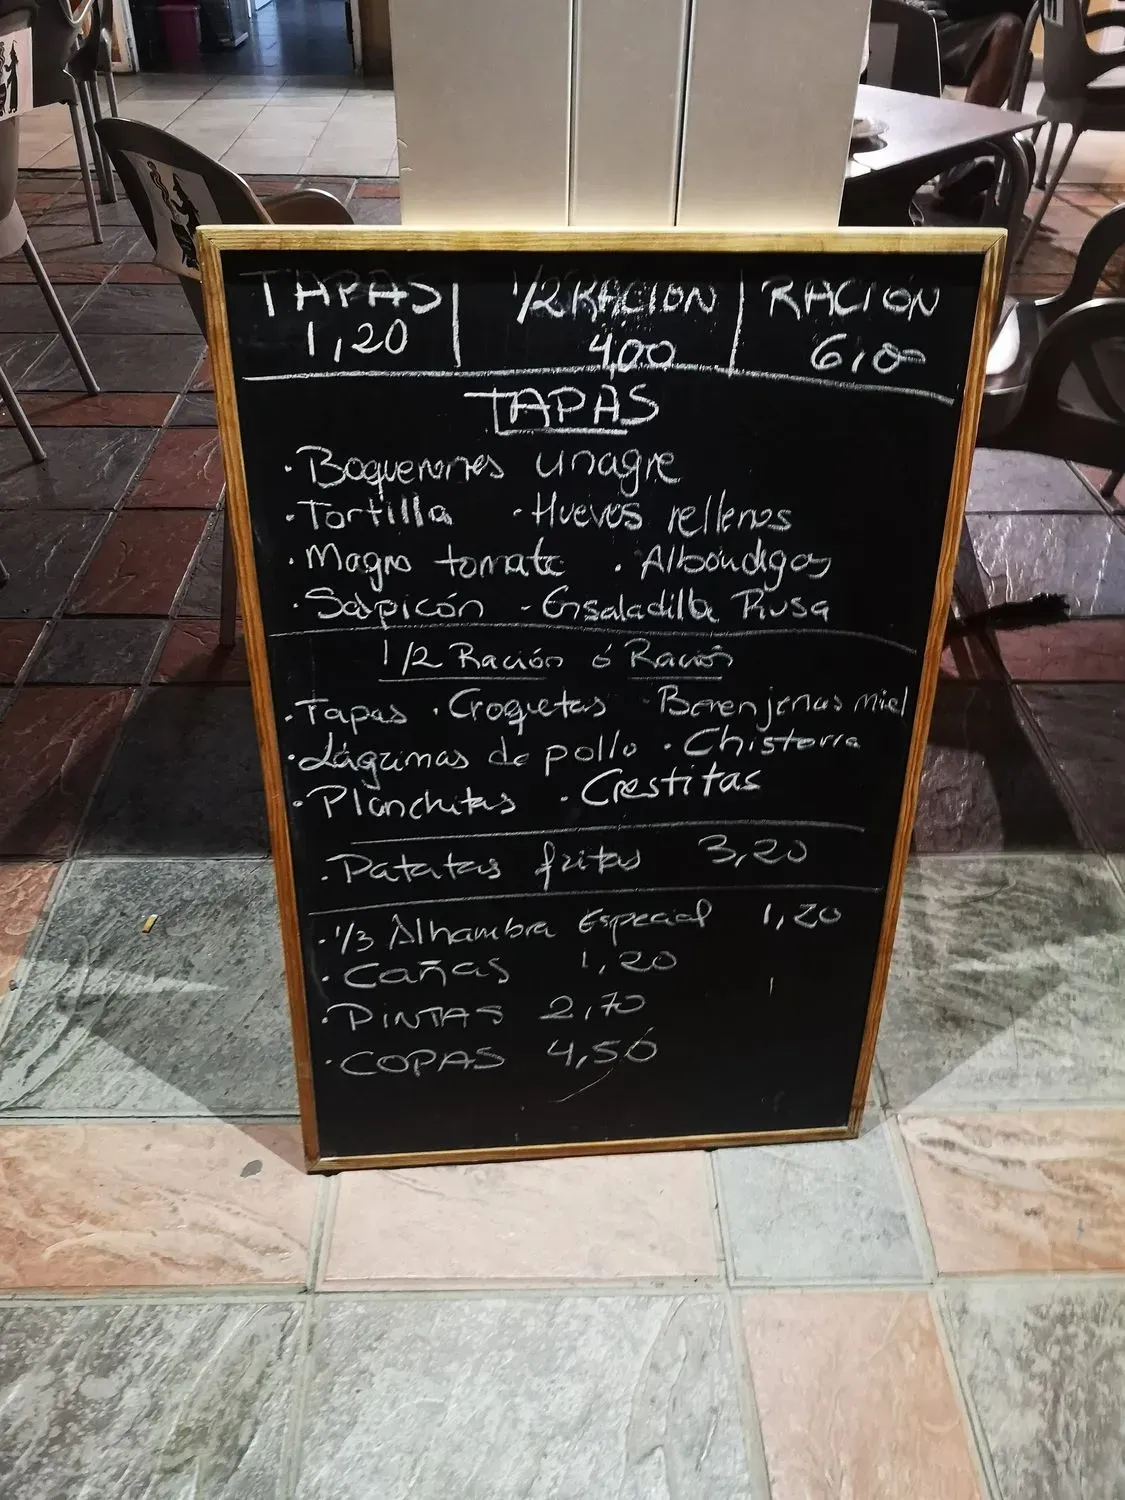 TAPAS | 1/2 RACION | RACIÓN
1,20 4,00 6,00
TAPAS
· Boquerones vinagre
· Tortilla · Huevos rellenos
· Magro tomate · Albondigas
· Salpicón - Ensaladilla Rusa
1/2 Ración ó Ración
· Tapas · Croquetas · Berenjenas miel
· Lágrimas de pollo · Chistorra
· Planchitas · Crestitas
· Patatas fritas 3,20
· 1/3 Alhambra Especial 1,20
· Cañas 1,20
· PINTAS 2,70
· COPAS 4,50